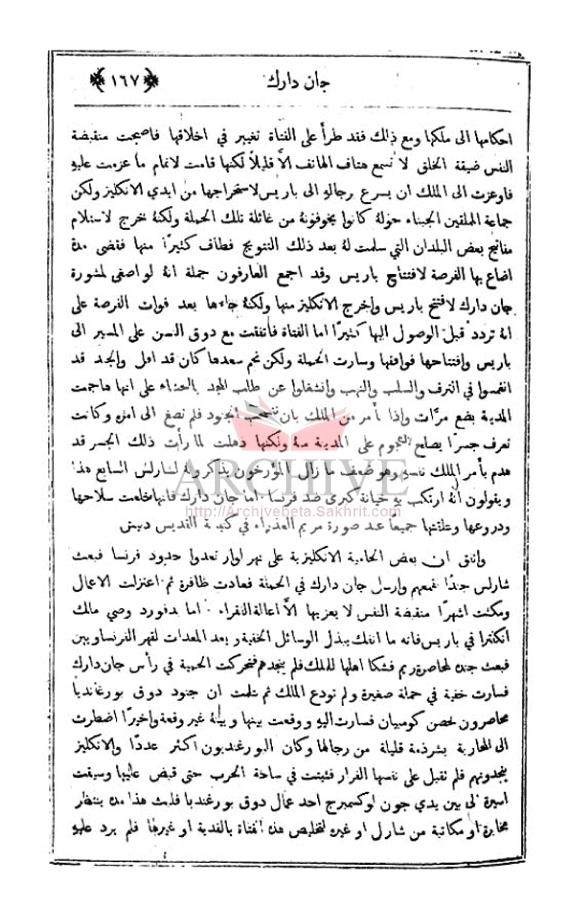 جان دارك
﴿١٦٧﴾
احكامها الى ملكها ومع ذلك فقد طرأ على الفتاة تغيير في اخلاقها فاصبحت منقبضة
النفس ضيقة الخلق لا تسمع هتاف الهاتف الاَّ قليلاً لكنها قامت لاتمام ما عزمت عليهِ
فاوعزت الى الملك ان يسرع برجالهِ الى باريس لاستخراجها من ايدي الانكليز ولكن
جماعة الملقين الجبناء حولهُ كانوا يخوفونهُ من غائلة تلك الحملة ولكنهُ خرج لاستلام
مفاتيح بعض البلدان التي سلمت لهُ بعد ذلك التتويج فطاف كثيرًا منها فقضى مدة
اضاع بها الفرصة لافتتاح باريس وقد اجمع العارفون جملة انهُ لو اصغى لمشورة
جان دارك لافتتح باريس واخرج الانكليز منها ولكنهُ جاءها بعد فوات الفرصة على
انهُ تردد قبل الوصول اليها كثيرًا اما الفتاة فأتفقت مع دوق السن على المسير الى
باريس وافتتاحها فوافقها وسارت الحملة ولكن نجم سعدها كان قد افل والجند قد
انغمسوا في الترف والسلب والنهب وانشغلوا عن طلب المجد بالحذاء على انها هاجمت
المدينة بضع مرَّات وإذا بأمر من الملك بان تنسحب الجنود فلم تصغ الى امره وكانت
تعرف جسرًا يصلح للهجوم على المدينة منهُ ولكنها ذهلت لما رأت ذلك الجسر قد
هدم بأمر الملك نفسهِ وهو ضعف ما زال المؤرخون يذكرونهُ لشارلس السابع هذا
ويقولون انهُ ارتكب بهِ خيانة كبرى ضد فرنسا اما جان دارك فانها خلعت سلاحها
ودروعها وعلقتها جميعًا عند صورة مريم العذراء في كنيسة القديس دنيس
واتفق ان بعض الحامية الانكليزية على نهر لوار تعدوا حدود فرنسا فبعث
شارلس جندًا لقمعهم وارسل جان دارك في الحملة فعادت ظافرة ثم اعتزلت الاعمال
ومكثت اشهرًا منقبضة النفس لا يعزيها الاَّ اعالة الفقراء . اما بدفورد وصي مالك
انكلترا في باريس فانه ما انفك يبذل الوسائل الخفية ويعد المعدات لقهر الفرنساويين
فبعث جنده لمحاصرة ريم فشكا اهلها للملك فلم ينجدهم فتحركت الحمية في رأس جان دارك
فسارت خفية في حملة صغيرة ولم تودع الملك ثم علمت ان جنود دوق بورغانديا
محاصرون لحصن كومبيان فسارت اليهِ ووقعت بينها وبينهُ غير وقعة واخيرًا اضطرت
الى المحاربة بشرذمة قليلة من رجالها وكان البورغنديون اكثر عددًا والانكليز
ينجدونهم فلم تقبل على نفسها الفرار فثبتت في ساحة الحرب حتى قبض عليها وسيقت
اسيرة الى بين يدي جون لوكسمبرج احد عمال دوق بورغنديا فلبث هذا مدة ينتظر
مخابرة او مكاتبة من شارل او غيره لتخليص هذه الفتاة بالفدية او غيرها فلم يرد عليهِ
ARCHIVE
http://Archivebeta.Sakhrit.com